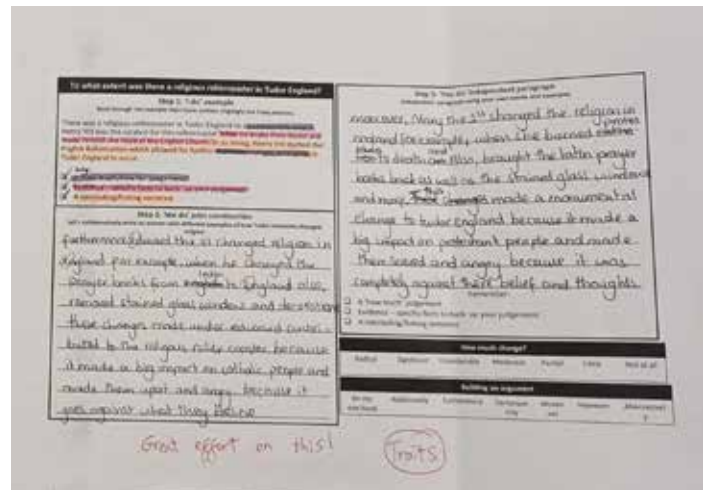 To what extent was there a religious rollercoaster in Tudor England?
Step 1: 'I do' example
There was a religious rollercoaster in Tudor England
Henry VIII was the catalyst for this rollercoaster
made himself the Head of the English Church
English Reformation which allowed for further
Tudor England to occur.
A concluding/linking sentence
Step 2: 'We do' joint construction
furthermore, Edward the VI changed religion in
England for example, when he changed the
prayer books from to England also,
removed stained glass windows and decorations
these changes made under edward contri-
buted to the religious roller coaster because
it made a big impact on catholic people and
made them upset and angry because it
goes against what they believe
Step 3: 'You do' independent paragraph
moreover, Mary the 1st changed the religion in
england for example, when she burned
to death Also, brought the latin prayer
books back as well as the stained glass windows
and many this made a monumental
change to tudor england because it made a
big impact on protestant people and made
them scared and angry because it was
completely against there belief and thoughts
Remember:
A 'how much' judgement
Evidence – specific facts to back up your judgement
A concluding/linking sentence
How much change?
Radical Significant Considerable Moderate Partial Little Not at all
Building an argument
On the one hand Additionally Furthermore Moreover However
Great effort on this!
Traits